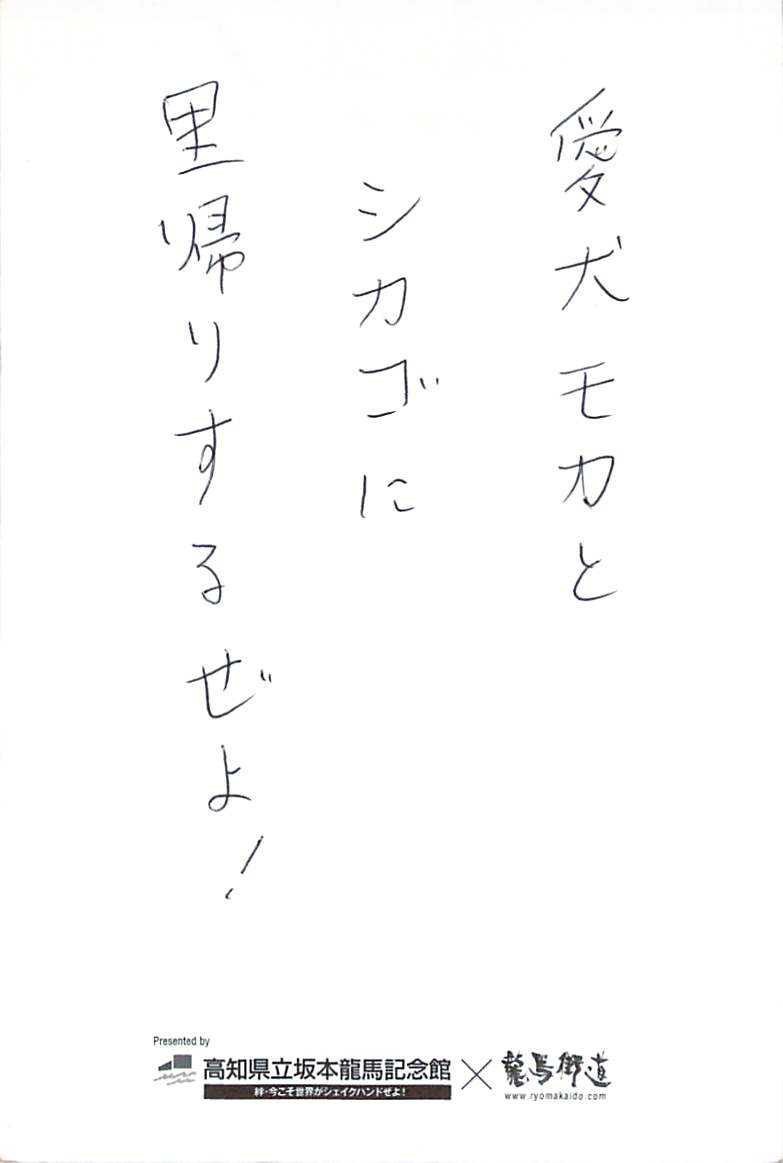 愛犬モカと
シカゴに
里帰りするぜよ!
Presented by
高知県立坂本龍馬記念館 × 龍馬街道
絆・今こそ世界がシェイクハンドぜよ!
www.ryomakaido.com